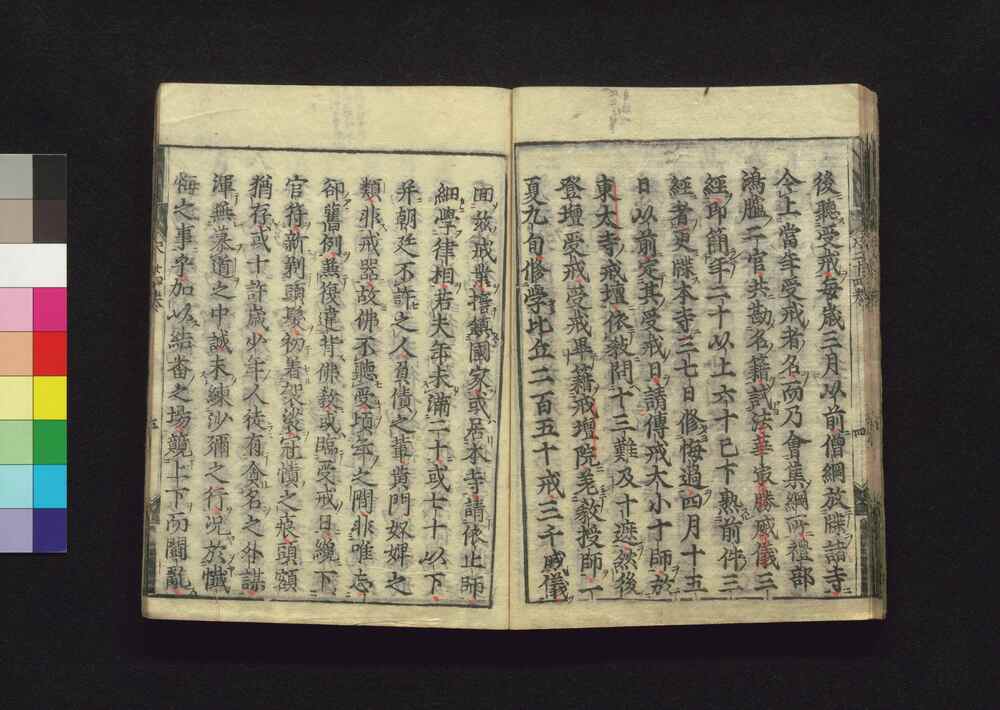 後聽受戒毎歳三月以前僧綱放牒諸寺
令上當年受戒者名而乃會集綱所禮部
鴻臚二官共勘名籍試法華最勝威儀三
經即簡年二十以上六十已下熟前件三
經者更牒本寺三七日修悔過四月十五
日以前定其受戒日請傳戒大小十師於
東大寺戒壇依教問十三難及十遮然後
登壇受戒受戒畢籍戒壇院差教授師一
夏九旬修學比丘二百五十戒三千威儀
因茲戒業搘鎮國家或居本寺請依止師
細學律相若夫年未滿二十或七十以下
并朝廷不許之人負債之輩黄門奴婢之
類非戒器故佛不聽受頃年之間非唯忘
卻舊例兼復違背佛教或臨受戒日纔下
官符新剃頭髮初着袈裟冠幘之痕頭額
猶存或十許歳少年人徒有貪名之外謀
渾無慕道之中誠未練沙彌之行況於懺
悔之事乎加以結番之場競上下而鬪亂